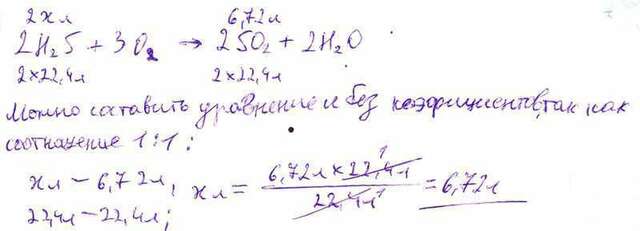 2 x л 6,72 л
2H₂S + 3O₂ → 2SO₂ + 2H₂O
2×22,4л 2×22,4л
Можно составить уравнение и без коэфициентов, так как
соотношение 1:1:
x л – 6,72 л, x л = 6,72л × 22,4л / 22,4л = 6,72л
22,4л – 22,4л;